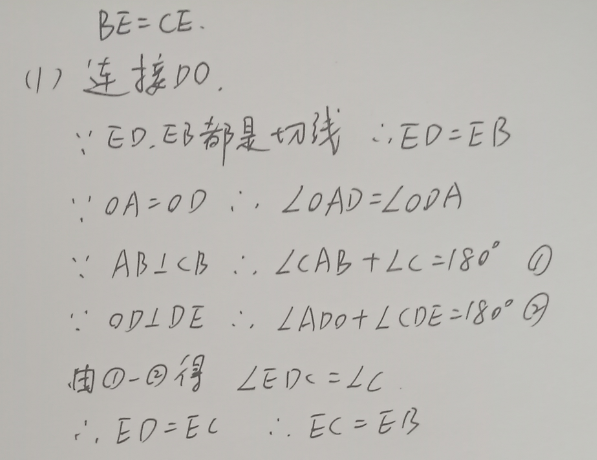 BE=CE.
(1) 连接DO.
∵ ED.EB都是切线 ∴ED=EB
∵ OA=OD ∴ ∠OAD=∠ODA
∵ AB⊥CB ∴ ∠CAB+∠C=180° ①
∵ OD⊥DE ∴ ∠ADO+∠CDE=180° ②
由①-②得 ∠EDC=∠C
∴ ED=EC ∴ EC=EB